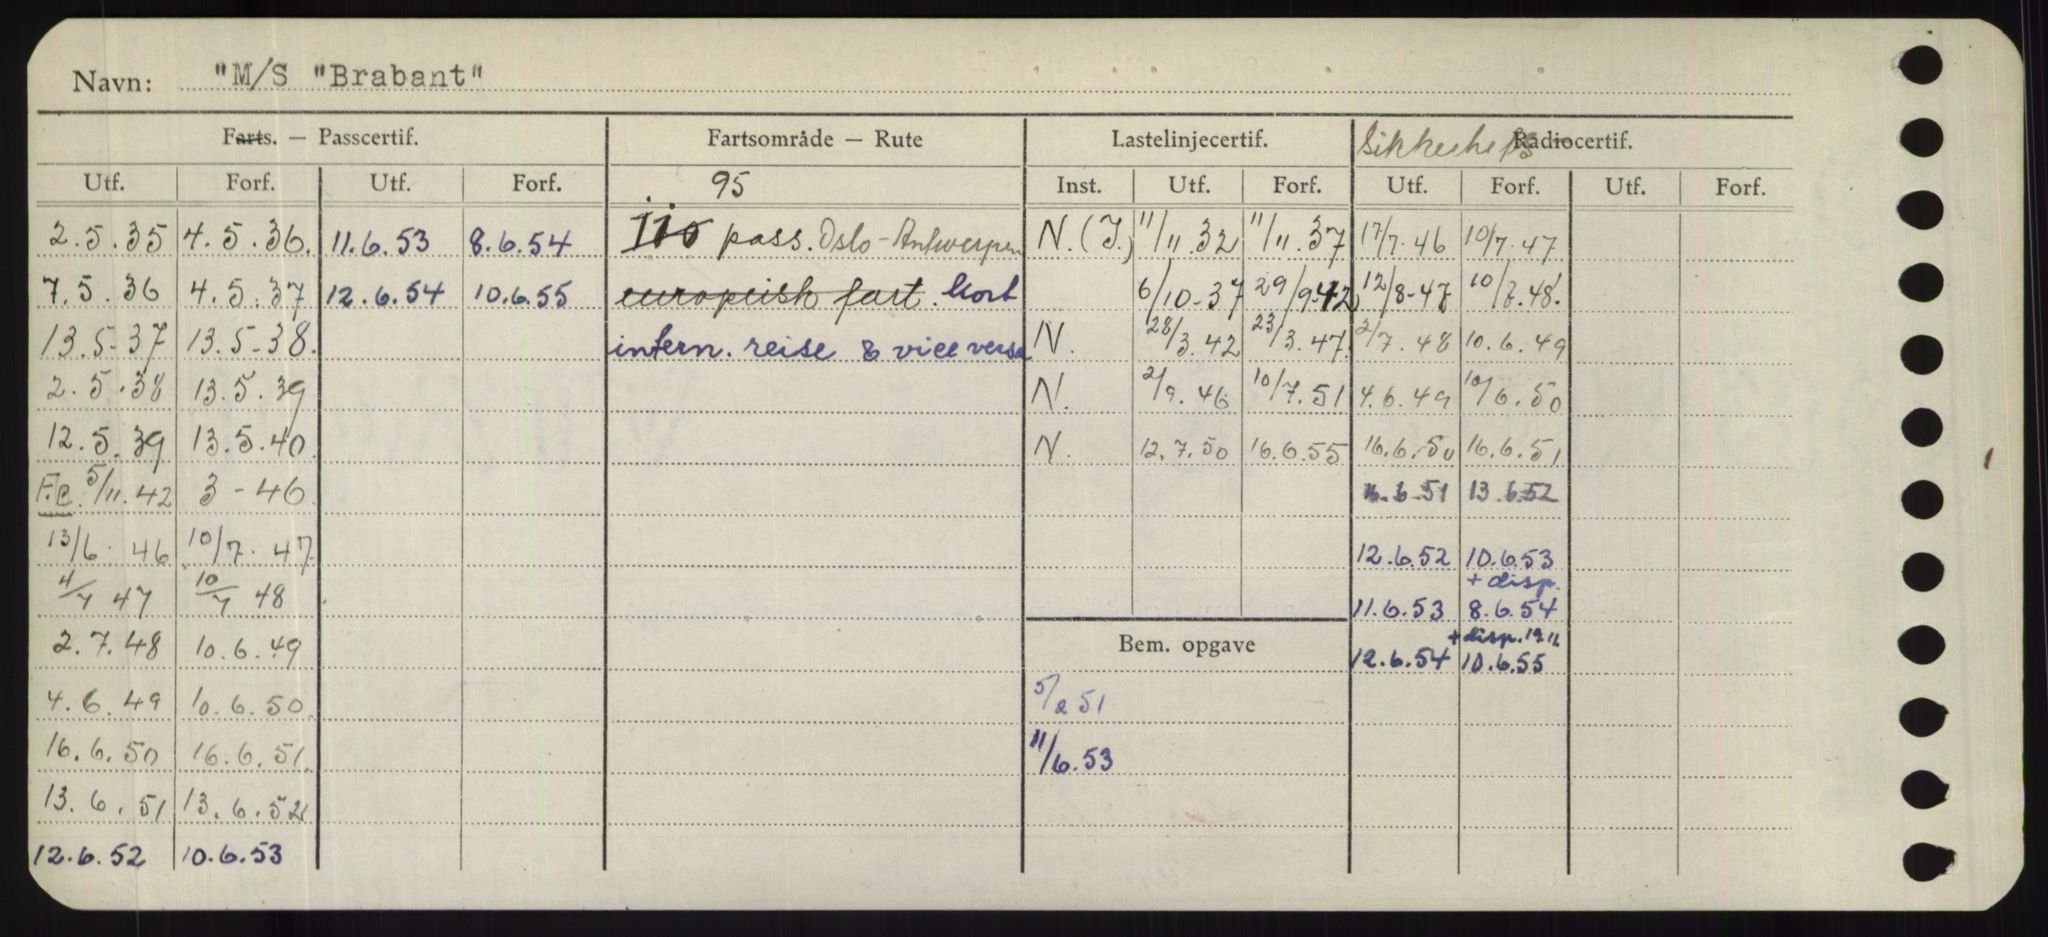 Navn: "M/S "Brabant"
Farts. — Passcertif. Fartsområde — Rute Lastelinjecertif. Sikkerhets Radiocertif.
Utf. Forf. Utf. Forf. 95 Inst. Utf. Forf. Utf. Forf. Utf. Forf.
2.5.35 4.5.36. 11.6.53 8.6.54 110 pass. Oslo-Antwerpen N.(I.) 11/11.32 11/11.37 17/7.46 10/7.47
7.5.36 4.5.37 12.6.54 10.6.55 europeisk fart. Kort 6/10-37 29/9.42 12/8-47 10/7.48.
13.5-37 13.5-38. intern. reise & vice versa N. 28/3.42 23/3.47 2/7.48 10.6.49
2.5.38 13.5.39 N. 2/9.46 10/7.51 4.6.49 10/6.50
12.5.39 13.5.40 N. 12.7.50 16.6.55 16.6.50 16.6.51
F.c. 5/11.42 3-46 6.51 13.6.52
13/6.46 10/7.47 12.6.52 10.6.53
+ disp.
4/7 47 10/7 48 11.6.53 8.6.54
+ disp. 19 11.
2.7.48 10.6.49 Bem. opgave 12.6.54 10.6.55
4.6.49 10.6.50 5/2 51
16.6.50 16.6.51 11/6.53
13.6.51 13.6.52
12.6.52 10.6.53